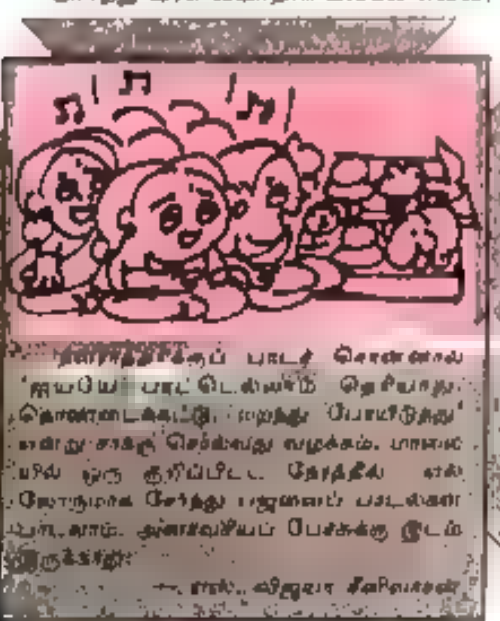 பாடச் சொன்னால்
'ஐயையோ பாட்டெல்லாம் தெரியாது,
தொண்டைக்கட்டு, மறந்து போயிடுத்து'
என்று சாக்கு சொல்வது வழக்கம். மாலை
யில் ஒரு குறிப்பிட்ட நேரத்தில் எல்
லோருமாக சேர்ந்து பஜனைப் பாடல்கள்
பாடலாம். அனாவசியப் பேச்சுக்கு இடம்
இருக்காது.
— எஸ். விஜயா சீனிவாசன்